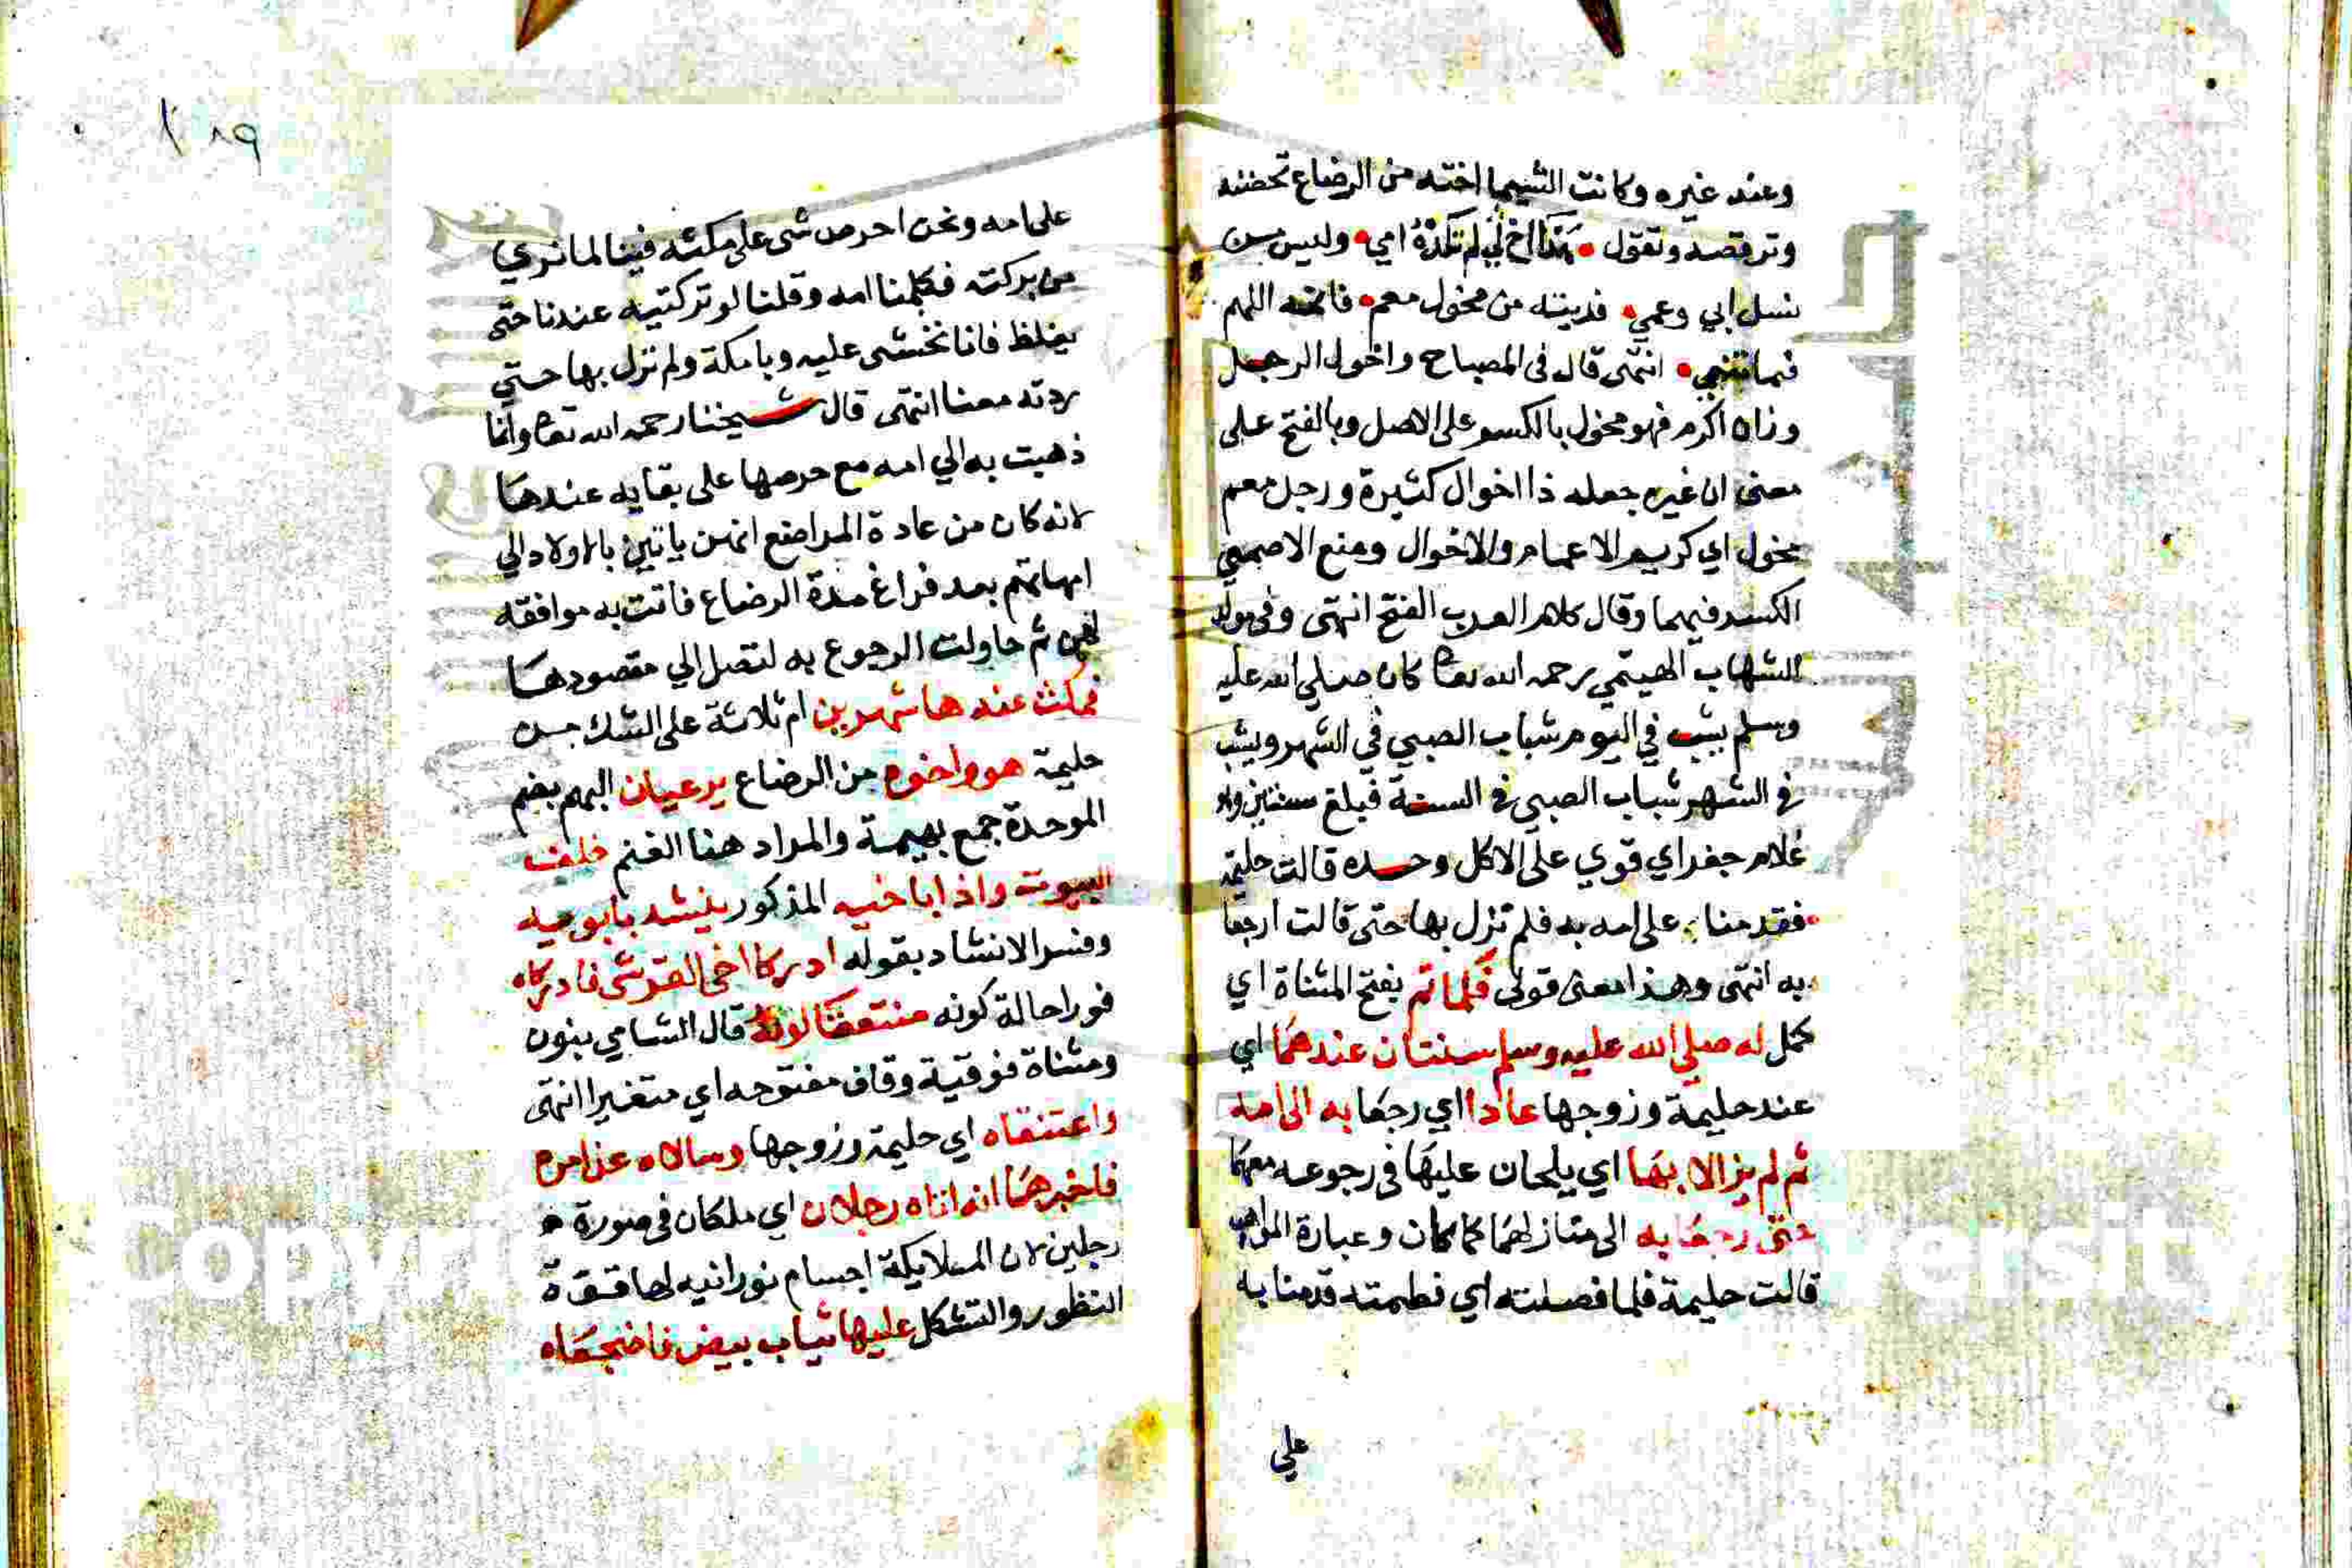 وعند غيره وكانت الشيما اخته من الرضاع تحضنه
وترقصه وتقول هذا اخ لي لم تلده امي وليس من
نسل ابي وعمي فديته من مخول معم فانمه اللهم
فيما تنمي انتهى قال في المصباح واخول الرجل
وزان اكرم فهو مخول بالكسر على الاصل وبالفتح على
معنى ان غيره جعله ذا اخوال كثيرة ورجل معم
مخول اي كريم الاعمام والاخوال ومنع الاصمعي
الكسر فيهما وقال كلام العرب الفتح انتهى وفي مولد
الشهاب الهيتمي رحمه الله تعا كان صلي الله عليه
وسلم يشب في اليوم شباب الصبي في الشهر ويشب
في الشهر شباب الصبي في السنة فبلغ سنتين وهو
غلام جفر اي قوي على الاكل وحده قالت حليمة
فقدمنا على امه به فلم نزل بها حتى قالت ارجعا
به انتهى وهذا معنى قولي فلما تم بفتح المثناة اي
كمل له صلي الله عليه وسلم سنتان عندهما اي
عند حليمة وزوجها عادا اي رجعا به الى امه
ثم لم يزالا بها اي يلحان عليها في رجوعه معهما
حتى رجعا به الى منازلهما كما كان وعبارة المواهب
قالت حليمة فلما فصلته اي فطمته قدمنا به
علي
١٨٩
على امه ونحن احرص شى على مكثه فينا لما نري
من بركته فكلمنا امه وقلنا لو تركتيه عندنا حتى
يغلظ فانا نخشى عليه وبا مكة ولم نزل بها حتي
ردته معنا انتهى قال شيخنا رحمه الله تعا وانما
ذهبت به الي امه مع حرصها على بقايه عندها
لانه كان من عادة المراضع انهن ياتين بالاولاد الي
امهاتهم بعد فراغ مدة الرضاع فاتت به موافقة
لهن ثم حاولت الرجوع به لتصل الي مقصودها
فمكث عندها شهرين ام ثلاثة على الشك من
حليمة هو واخوه من الرضاع يرعيان البهم بضم
الموحدة جمع بهيمة والمراد هنا الغنم خلف
البيوت واذا باخيه المذكور ينشد بابويه
وفسر الانشاد بقوله ادركا اخي القرشى فادركاه
فورا حالة كونه منتقعا لونه قال الشامي بنون
ومثناة فوقية وقاف مفتوحه اي متغيرا انتهى
واعتنقاه اي حليمة وزوجها وسالاه عن امره
فاخبرهما انه اتاه رجلان اي ملكان في صورة
رجلين لان الملايكة اجسام نورانيه لها قوة
التطور والتشكل عليها ثياب بيض فاضجعاه